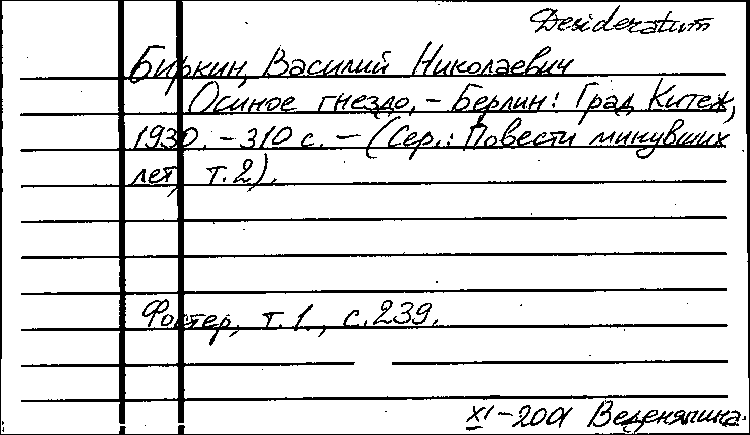 Desideratum
Биркин, Василий Николаевич
Осиное гнездо. - Берлин: Град Китеж,
1930. - 310 с. - (Сер.: Повести минувших
лет, т. 2).
Фостер, т. 1., с. 239.
XI-2001 Веденяпина